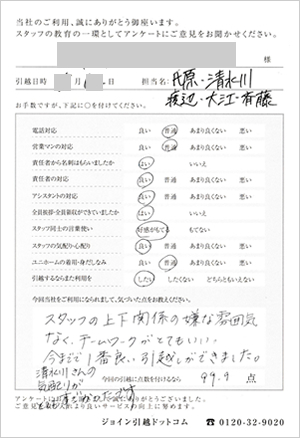 当社のご利用、誠にありがとう御座います。
スタッフの教育の一環としてアンケートにご意見をお聞かせください。
様
引越日時 月 日 担当名: 氏原・清水川
渡辺・大江・斉藤
お手数ですが、下記に○を付けてください。
電話対応 良い 普通 あまり良くない 悪い
営業マンの対応 良い 普通 あまり良くない 悪い
責任者から名刺はもらいましたか はい いいえ
責任者の対応 良い 普通 あまり良くない 悪い
アシスタントの対応 良い 普通 あまり良くない 悪い
全員挨拶・全員紹介ができていましたか はい いいえ
スタッフ同士の言葉使い 好感がもてる もてない
スタッフの気配り心配り 良い 普通 あまり良くない 悪い
ユニホームの着用・身だしなみ 良い 普通 あまり良くない 悪い
引越するならまた利用を したい したくない どちらともいえない
今回当社をご利用になられまして、気づいた点をお教えください。
スタッフの上下関係の嫌な雰囲気
なく、チームワークがとてもいい。
今まで1番良い引越しができました。
清水川さんの
気配りが
今回の引越に点数を付けるなら 99.9 点
アンケートにお
ジョイン引越ドットコム 0120-32-9020